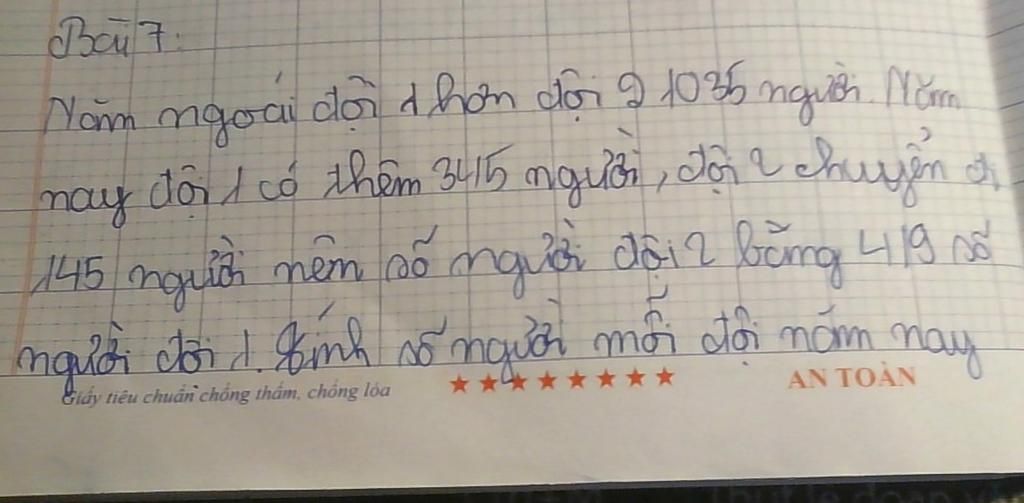 Bài 7:
Năm ngoái đội 1 hơn đội 2 1035 người. Năm
nay đội 1 có thêm 3415 người, đội 2 chuyển đi
145 người nên số người đội 2 bằng 4/9 số
người đội 1. Tính số người mỗi đội năm nay
Giấy tiêu chuẩn chống thấm, chống lóa ★★★★★★★★ AN TOÀN